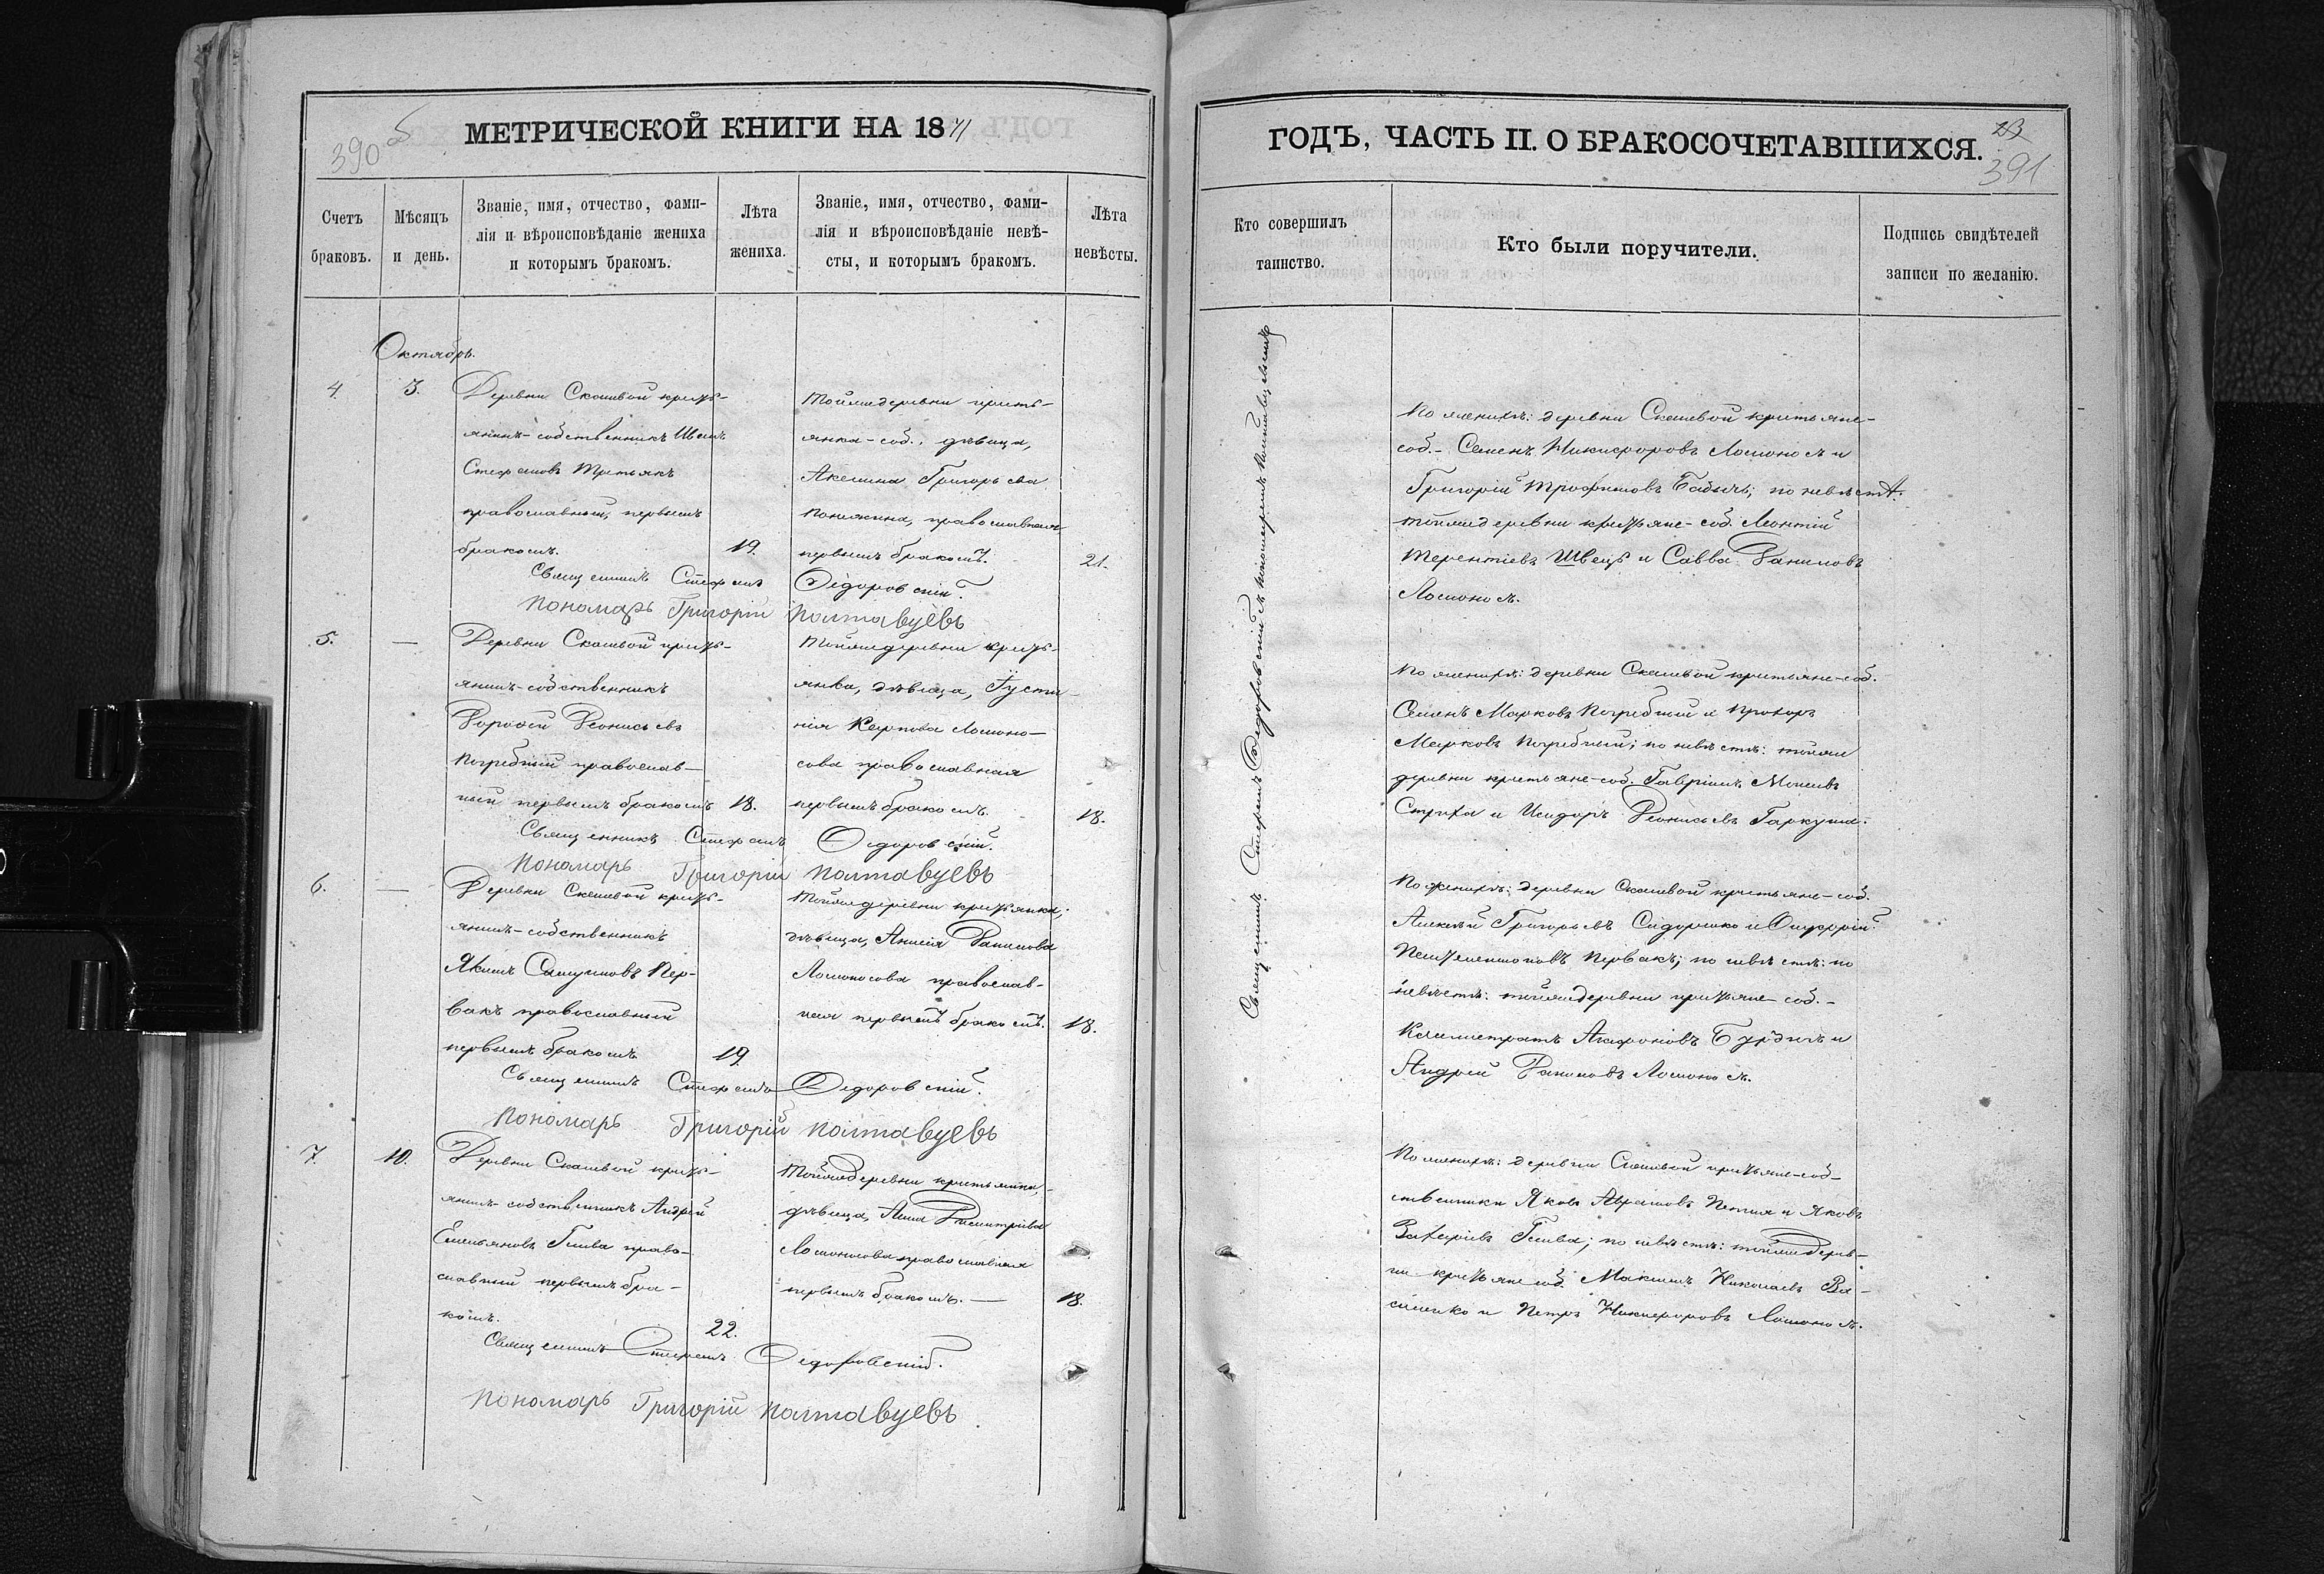 390 б
МЕТРИЧЕСКОЙ КНИГИ НА 1871
Счетъ
браковъ.
Мѣсяцъ
и день.
Званіе, имя, отчество, фами-
лія и вѣроисповѣданіе жениха
и которымъ бракомъ.
Лѣта
жениха.
Званіе, имя, отчество, фами-
лія и вѣроисповѣданіе невѣ-
сты, и которымъ бракомъ.
Лѣта
невѣсты.
Октябрь.
4.
3.
Деревни Скаевой кресть-
янинъ-собственникъ Иванъ
Стефановъ Третьякъ
православный, первымъ
бракомъ.
19.
Тойже деревни кресть-
янка-соб., дѣвица,
Акелина Григорьева
православная
первымъ бракомъ.
21.
Священникъ Стефанъ Ѳедоровскій.
Пономарь Григорій Полтавцевъ
5.
—
Деревни Скаевой кресть-
янинъ-собственникъ
Дороѳей Деонисьевъ
Погребный православ-
ный первымъ бракомъ
18.
Тойже деревни кресть-
янка, дѣвица, Іусти-
нія Карпова Ломоно-
сова православная
первымъ бракомъ.
18.
Священникъ Стефанъ Ѳедоровскій.
Пономарь Григорій Полтавцевъ
6.
—
Деревни Скаевой кресть-
янинъ-собственникъ
Якимъ Пер-
вакъ православный
первымъ бракомъ
19.
Тойже деревни крестьянка,
дѣвица, Анисія Данилова
Ломоносова православ-
ная первымъ бракомъ.
18.
Священникъ Стефанъ Ѳедоровскій.
Пономарь Григорій Полтавцевъ
7.
10.
Деревни Скаевой кресть-
янинъ-собственникъ Андрей
Емельяновъ право-
славный первымъ бра-
комъ.
22.
Тойже деревни крестьянка,
дѣвица, Анна Димитріева
Ломоносова православная
первымъ бракомъ. —
18.
Священникъ Стефанъ Ѳедоровскій.
Пономарь Григорій Полтавцевъ
ГОДЪ, ЧАСТЬ II. О БРАКОСОЧЕТАВШИХСЯ.
23
391
Кто совершилъ
таинство.
Кто были поручители.
Подпись свидѣтелей
записи по желанію.
Священникъ Стефанъ Ѳедоровскій съ пономаремъ Полтавцевымъ
По женихѣ: деревни Скаевой крестьяне-
соб.- Семенъ Никифоровъ Ломоносъ и
Григорій Трофимовъ Бабичъ; по невѣстѣ:
тойже деревни крестьяне-соб. Леонтій
Терентіевъ Швецъ и Савва Даниловъ
Ломоносъ.
По женихѣ: деревни Скаевой крестьяне-соб.
Семенъ Марковъ Погребный и Прохоръ
Марковъ Погребный; по невѣстѣ: тойже
деревни крестьяне-соб. Гавріилъ Моисеевъ
Стриха и Исидоръ Деонисьевъ Гаркуша.
По женихѣ: деревни Скаевой крестьяне-соб.
Алексѣй Григорьевъ Сидоренко и Онуфрій
Первакъ; по невѣстѣ: по
невѣстѣ: тойже деревни крестьяне-соб.-
Калистратъ Агафоновъ и
Андрей Даниловъ Ломоносъ.
По женихѣ: деревни Скаевой крестьяне-соб-
ственники Яковъ Аврамовъ и Яковъ
Захаріевъ; по невѣстѣ: тойже дерев-
ни крестьяне соб. Максимъ Николаевъ Ва-
силенко и Петръ Никифоровъ Ломоносъ.